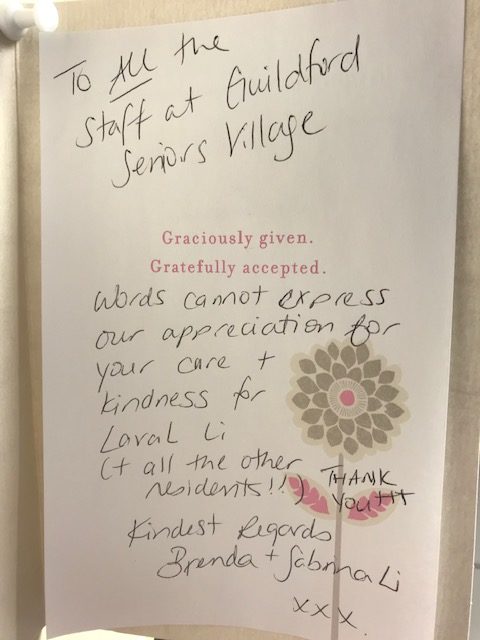 To ALL the
Staff at Guildford
Seniors Village
Graciously given.
Gratefully accepted.
Words cannot express
our appreciation for
your care +
kindness for
Laval Li
(+ all the other
residents!!)
THANK
YOU!!!
Kindest Regards
Brenda + Sabrina Li
xxx.